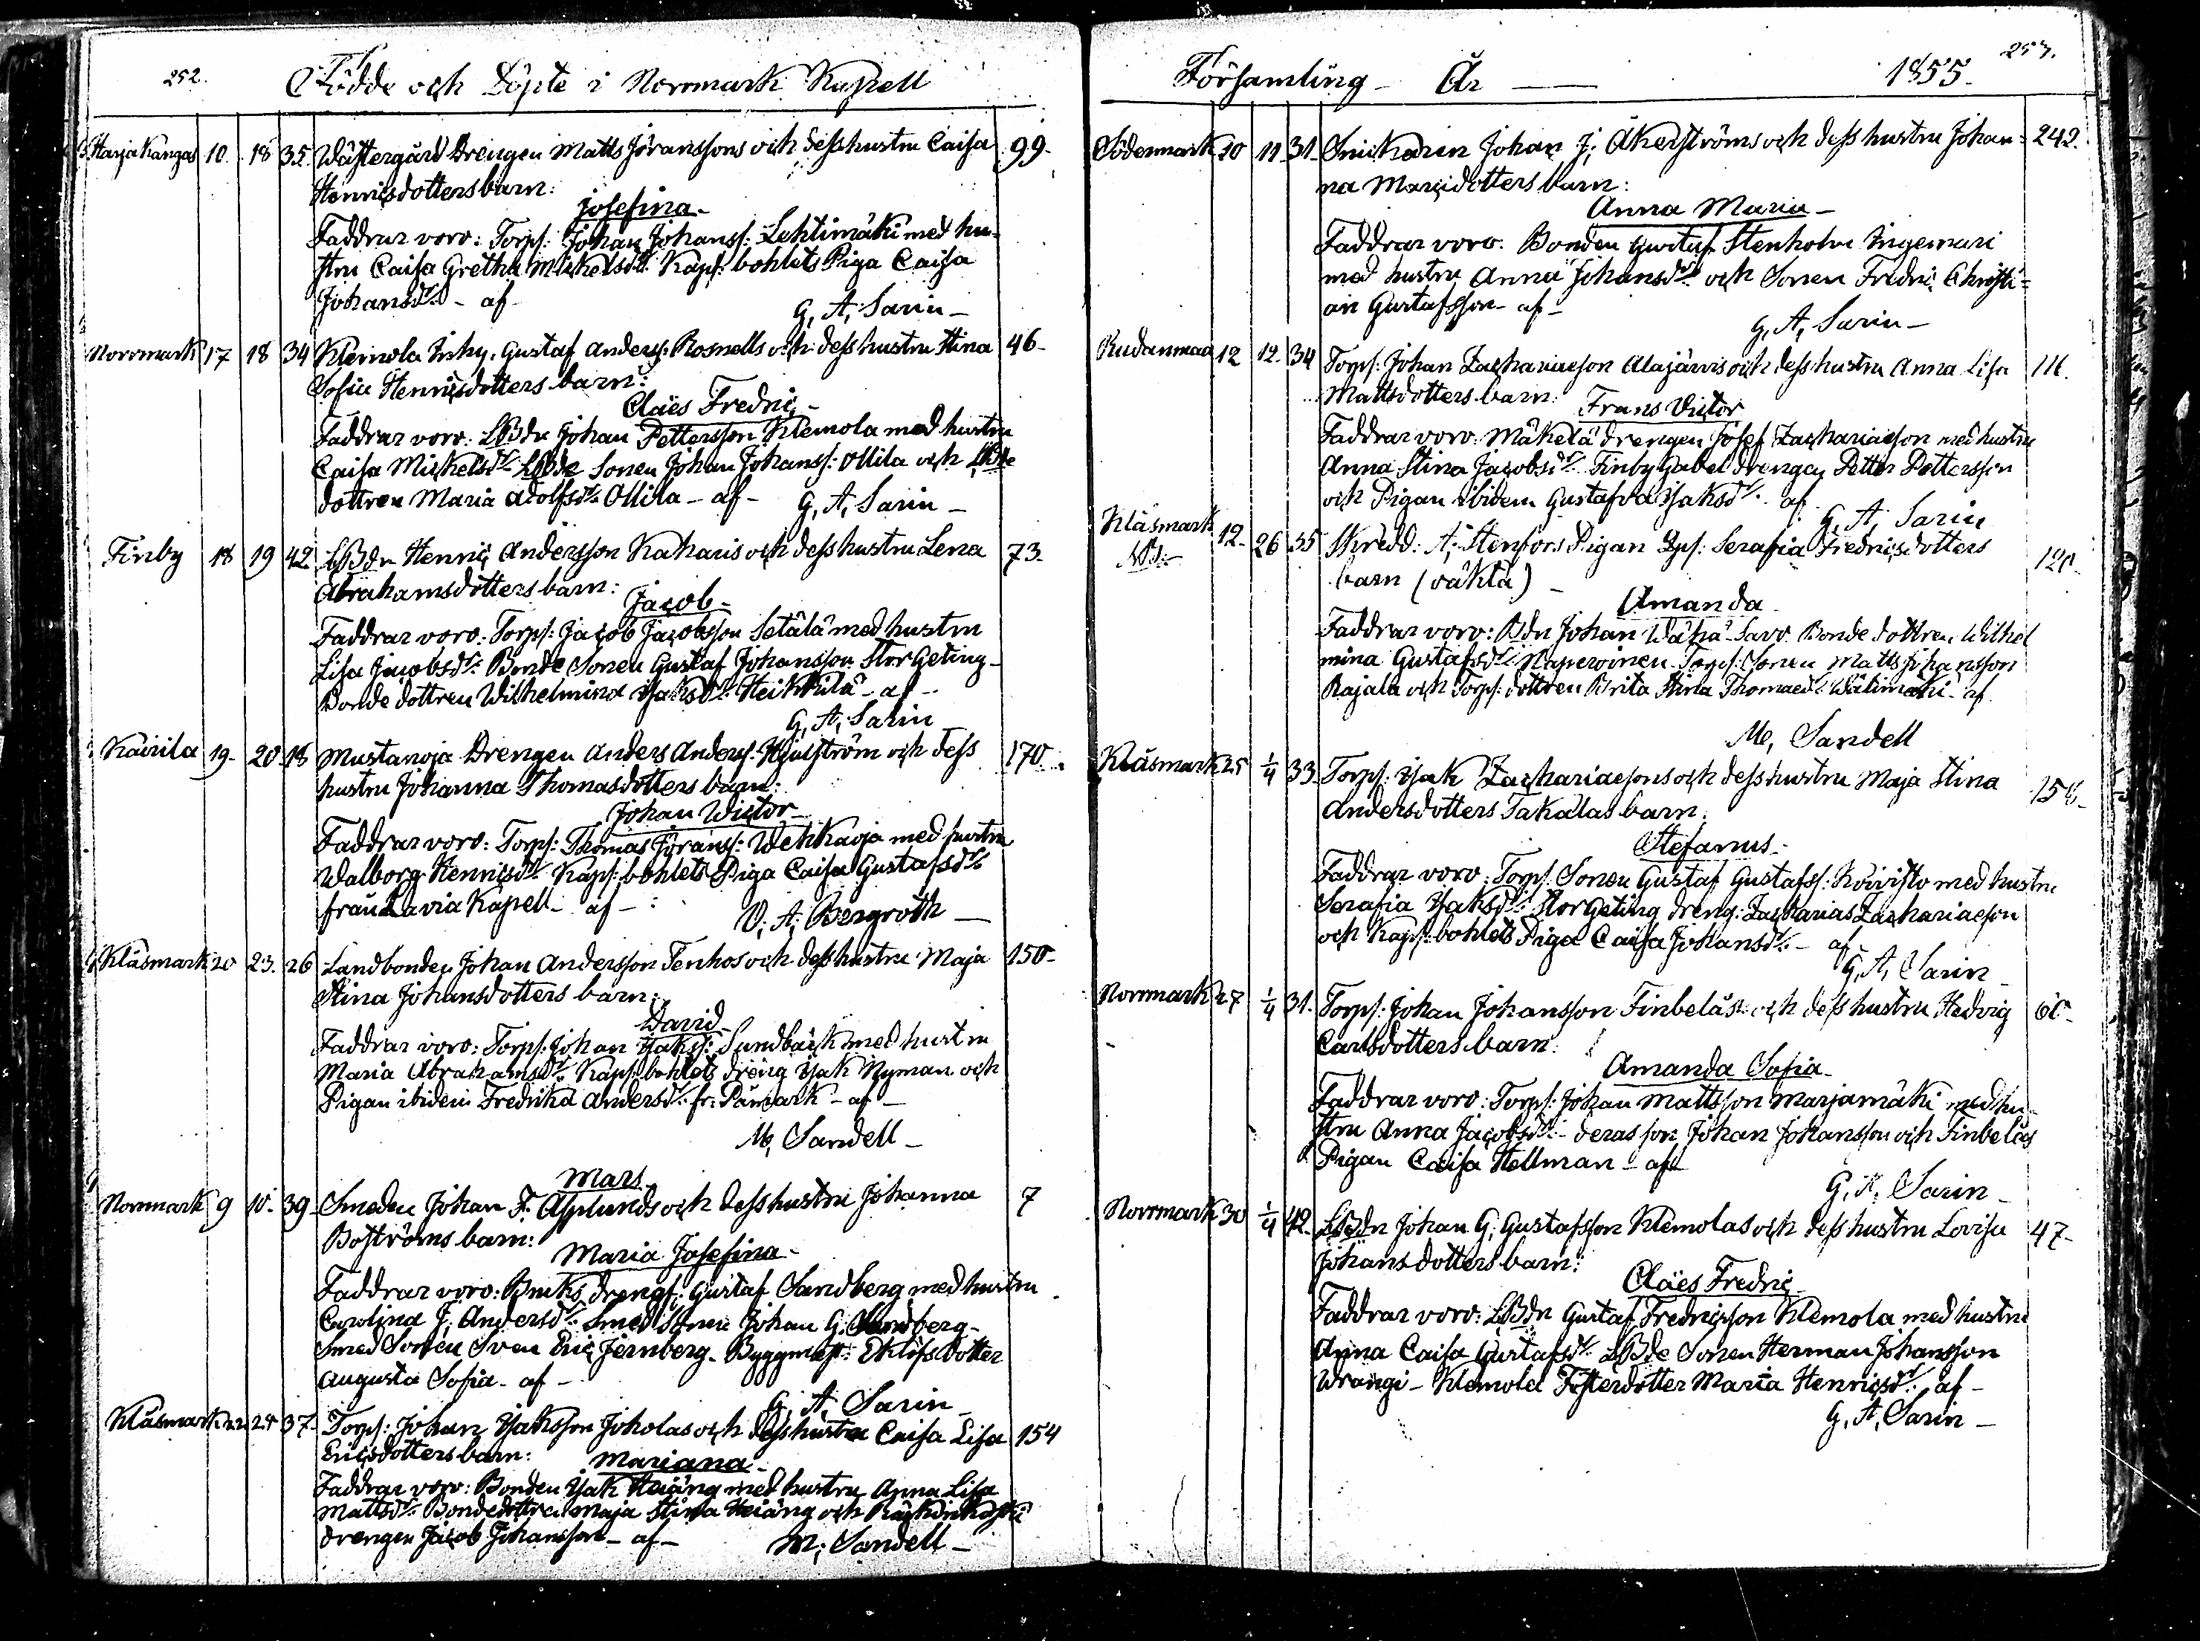 252.
Födde och Döpte i Norrmark Kapell
Harjakangas 10. 18 35. Wästergård Drengen Matts Göranssons och dess hustru Caisa 99.
Henricsdotters barn:
Josefina
Faddrar voro: Torp: Johan Johanss: Lehtimäki med hu-
stru Caisa Gretha Mickelsdr. Kap: bohlets Piga Caisa
Johansdr. - af -
G. A. Sarin -
Norrmark 17 18 34 Klemola Inhy. Gustaf Anderss: Rosnells och dess hustru Stina 46-
Sofia Henricsdotters barn:
Claës Fredric -
Faddrar voro: LBdn Johan Pettersson Klemola med hustru
Caisa Mickelsdr. LBde Sonen Johan Johanss: Ollila och LBde
dottren Maria Adolfsdr. Ollila - af - G. A. Sarin -
Finby 18 19 42 LBdn Henric Andersson Kaharis och dess hustru Lena 73-
Abrahamsdotters barn:
Jacob -
Faddrar voro: Torp: Jacob Jacobsson Setälä med hustru
Lisa Jacobsdr. Bonde Sonen Gustaf Johansson Stor Geting -
Bonde dottren Wilhelmina Isaksdr. Heikkilä - af -
G. A. Sarin
Kairila 19- 20 18 Mustanoja Drengen Anders Anderss: Hjulström och dess 170
hustru Johanna Thomasdotters barn:
Johan Wictor -
Faddrar voro: Torp: Thomas Göranss: Wehkaoja med hustru
Walborg Henricsdr. Kap: bohlets Piga Caisa Gustafsdr.
från Lavia Kapell - af -
V. A. Bergroth -
Klåsmark 20 23. 26 Landbonden Johan Andersson Tenhos och dess hustru Maja 150-
Stina Johansdotters barn:
David -
Faddrar voro: Torp: Johan Isakss: Sundbäck med hustru
Maria Abrahamsdr. Kap: bohlets dreng Isak Nyman och
Pigan ibidem Fredrika Andersdr. fr. Påmark - af -
M. Sandell -
Mars
Norrmark 9 10- 39- Smeden Johan F. Asplunds och dess hustru Johanna 7
Boströms barn:
Maria Josefina -
Faddrar voro: Bruks drengs: Gustaf Sandberg med hustru
Carolina J. Andersdr. Smed Sonen Johan G. Sandberg -
Smed Sonen Sven Eric Jernberg - Byggmäst: Eklöfs Dotter
Augusta Sofia - af -
G. A. Sarin -
Klåsmark 22 25 37- Torp: Johan Isaksson Jokolas och dess hustru Caisa Lisa 154
Ericsdotters barn:
Mariana -
Faddrar voro: Bonden Isak Heiäng med hustru Anna Lisa
Mattsdr. Bondedottren Maja Stina Heiäng och
drengen Jacob Johansson - af -
M. Sandell -
253.
Församling - År - 1855.
Södermark 10 11 31- Snickaren Johan J. Åkerströms och dess hustru Johan- 242.
na Marcidotters barn:
Anna Maria -
Faddrar voro: Bonden Gustaf Stenholm Ingemari
med hustru Anna Johansdr. och Sonen Fredric Christi-
an Gustafsson - af -
G. A. Sarin -
Rudanmaa 12 12- 34 Torp: Johan Zachariaeson Alajärvis och dess hustru Anna Lisa 111.
Mattsdotters barn:
Frans Victor
Faddrar voro: Mäkelä drengen Josef Zachariaeson med hustru
Anna Stina Jacobsdr. Finby Gabel drengen Petter Pettersson
och Pigan ibidem Gustafva Isaksdr. af
G. A. Sarin
Klåsmark 12- 26 35 Skredd: A. Stenfors Pigan Serafia Fredricsdotters 120-
NB:
barn (oäkta) -
Amanda -
Faddrar voro: Bdn Johan Wähä-Savo. Bonde dottren Wilhel
mina Gustafsdr. Torp: Sonen Matts Johansson
Rajala och Torp: dottren Brita Stina Thomaedr. Wälimäki - af
M. Sandell
Klåsmark 25 1/4 33- Torp: Isak Zachariaesons och dess hustru Maja Stina 158-
Andersdotters Takalas barn:
Stefanus -
Faddrar voro: Torp: Sonen Gustaf Gustafss: Koivisto med hustru
Serafia Isaksdr. Stor Geting dreng: Zacharias Zachariaeson
och Kap: bohlets Piga Caisa Johansdr. - af
G. A. Sarin -
Norrmark 27 1/4 31. Torp: Johan Johansson Finbelås och dess hustru Hedvig 60-
Carlsdotters barn:
Amanda Sofia -
Faddrar voro: Torp: Johan Mattsson Marjamäki med hu-
stru Anna Jacobsdr. - deras son Johan Johansson och Finbelås
Pigan Caisa Hellman - af -
G. A. Sarin -
Norrmark 30 1/4 42- LBdn Johan G. Gustafsson Klemolas och dess hustru Lovisa 47-
Johansdotters barn:
Claës Fredric
Faddrar voro: LBdn Gustaf Fredricsson Klemola med hustru
Anna Caisa Gustafsdr. LBde Sonen Herman Johansson
Wrangi - Klemola Fosterdotter Maria Henricsdr. af -
G. A. Sarin -